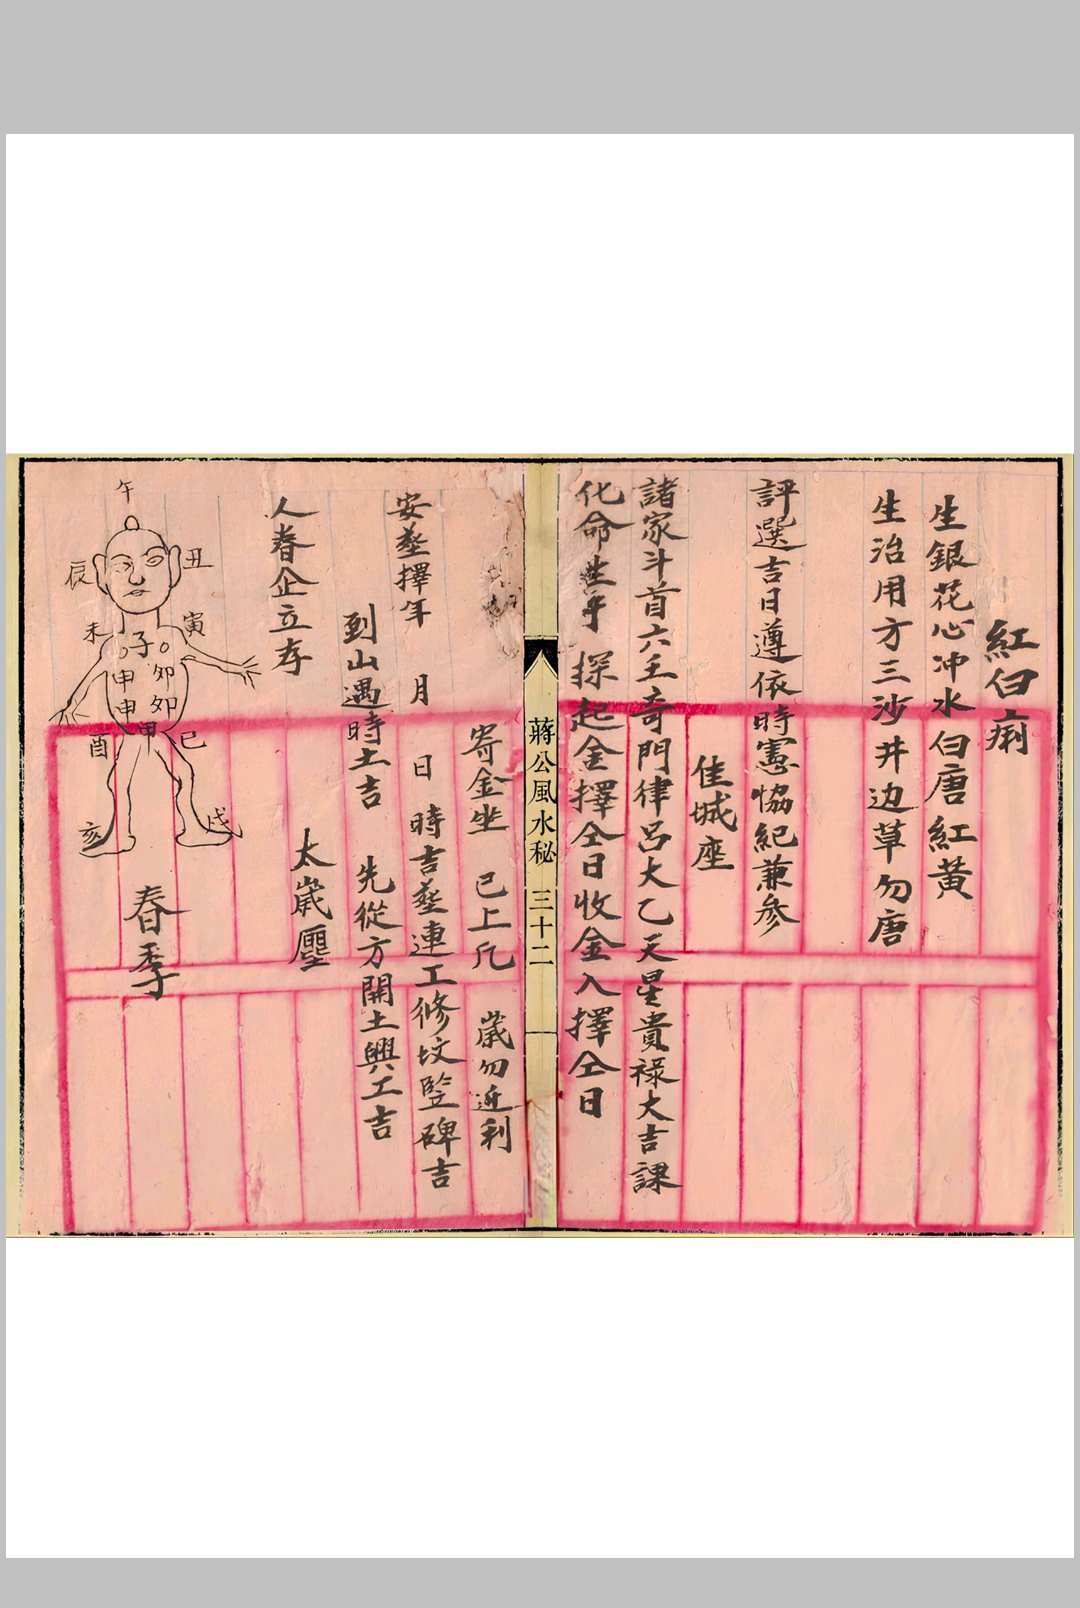 紅白痢
生銀花心冲水白唐紅黃
生治用方三沙井边草勿唐
評選吉日遵依時憲恊紀兼參
佳城座
諸家斗首六壬奇門律呂大乙天星貴祿大吉課
化命生于 探起金擇仝日收金入擇仝日
蔣公風水秘 三十二
寄金坐 已上凡 歲勿近利
安塟擇年 月 日 時吉塟連工修坟竪碑吉
到山遇時土吉 先從方開土興工吉
人春企立存 太歲壓
午
丑
辰
寅
未
子
卯
申
卯
申
甲
巳
酉
戌
亥
春季